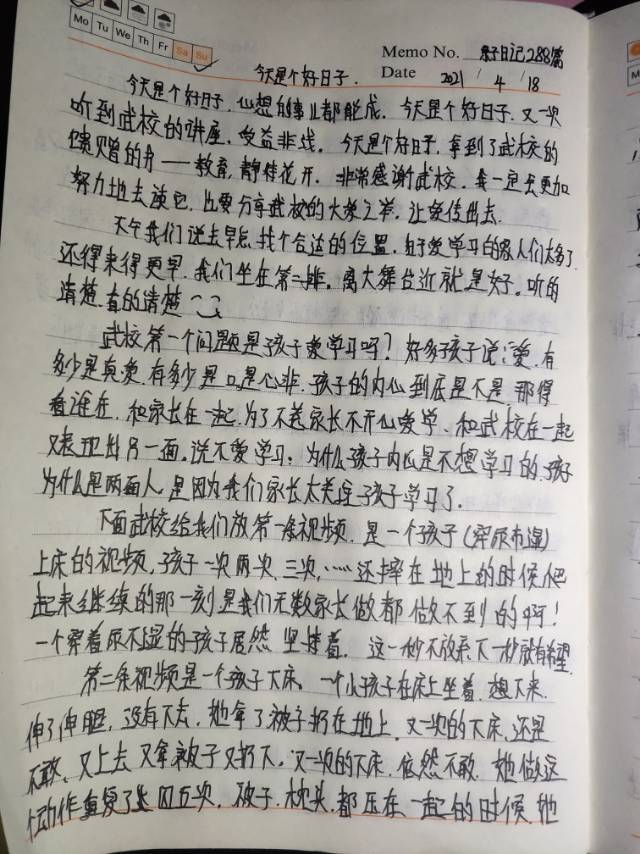 Mo Tu We Th Fr Sa Su
Memo No. 亲子日记288篇
Date 2021 / 4 / 18
今天是个好日子.
今天是个好日子,心想的事儿都能成。今天是个好日子,又一次
听到武校的讲座,受益非浅。今天是个好日子,拿到了武校的
馈赠的书——教育,静待花开.非常感谢武校。我一定会更加
努力地去读它,也要分享武校的大爱之举,让爱传出去.
下午我们说去早点,找个合适的位置,有好爱学习的家人们太多了
还得来得更早,我们坐在第二排。离大舞台近就是好。听的
清楚.看的清楚
武校第一个问题是孩子爱学习吗?好多孩子说:爱,有
多少是真爱,有多少是口是心非.孩子的内心到底是不是 那得
看谁在.和家长在一起,为了不惹家长不开心爱学、和武校在一起
又表现出另一面,说不爱学习;为什么孩子内心是不想学习的.孩子
为什么是两面人,是因为我们家长太关注孩子学习了.
下面武校给我们放第一条视频.是一个孩子(穿尿布湿)
上床的视频,孩子一次两次、三次,……还摔在地上的时候,爬
起来继续的那一刻是我们无数家长做都做不到的啊!
一个穿着尿不湿的孩子居然坚持着.这一秒不放弃,下一秒就有希望.
第二条视频是一个孩子下床,一个小孩子在床上坐着.想下来.
伸了伸腿,没有下去,她拿了被子扔在地上,又一次的下床,还是
不敢、又上去又拿被子又扔下,又一次的下床.依然不敢.她做这
个动作重复了 四五次.被子.枕头.都压在一起的时候,他